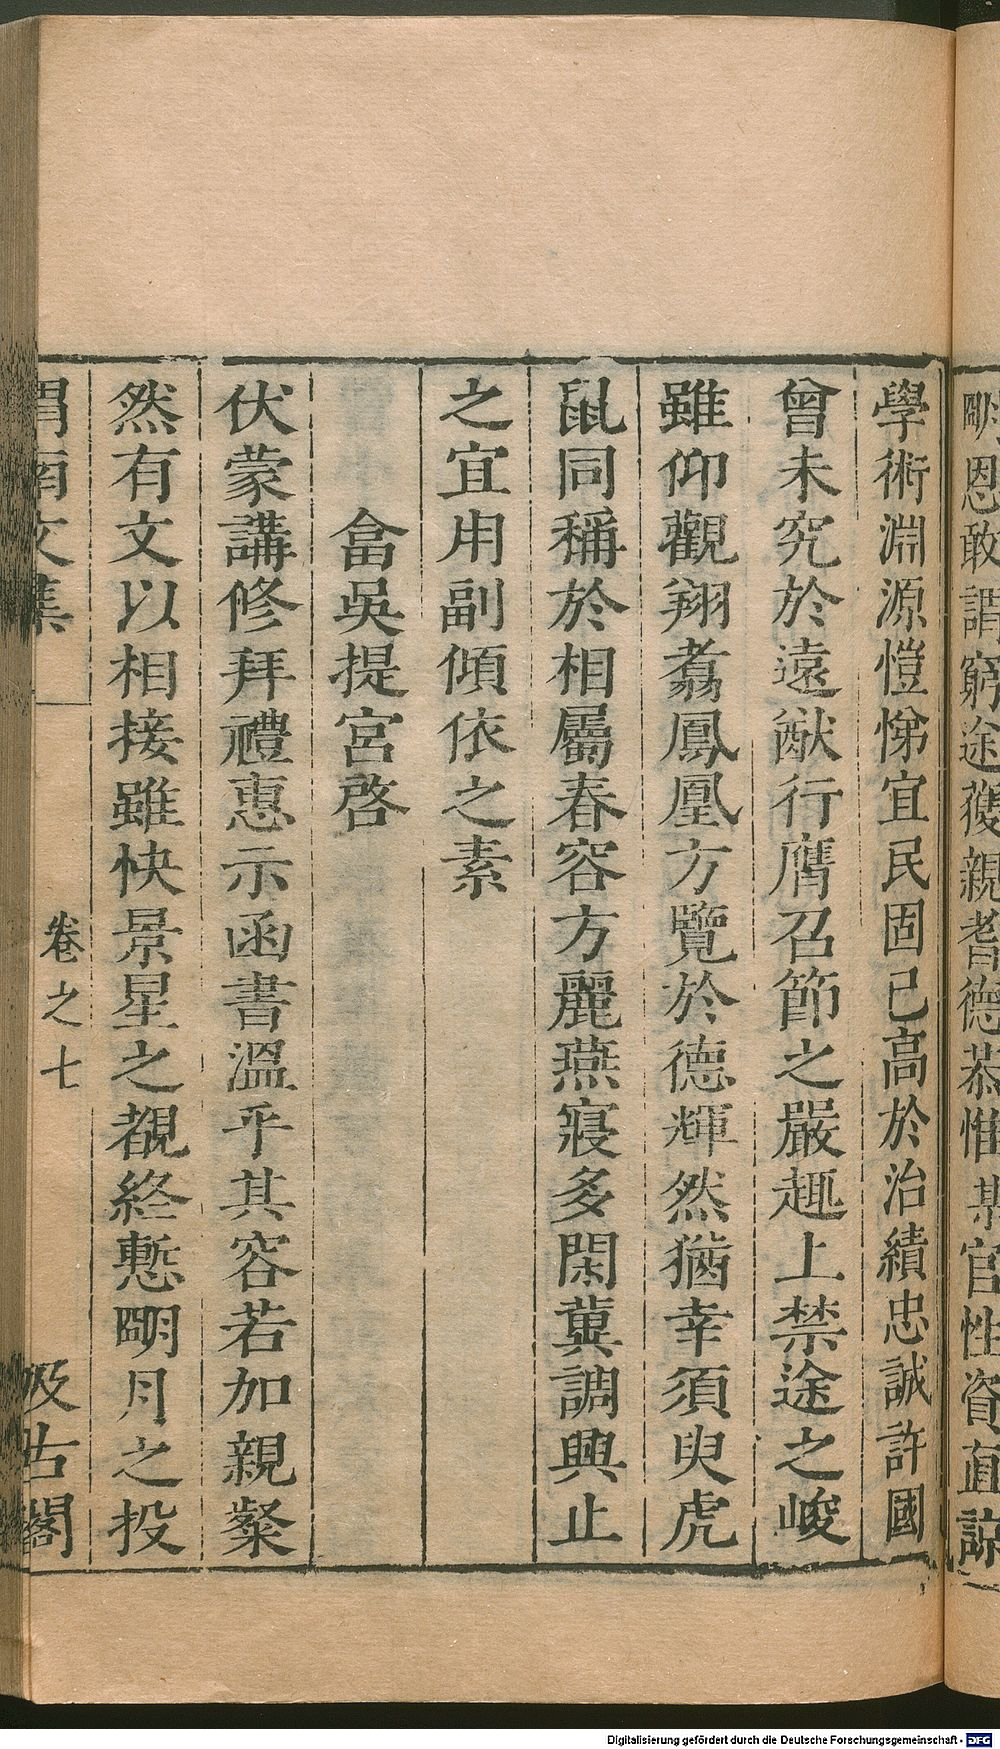 朙恩敢謂窮途獲親耆德恭惟某官性資直諒
學術淵源愷悌宜民固已高於治績忠誠許國
曾未究於遠猷行膺召節之嚴趣上禁途之峻
雖仰觀翔翥鳳凰方覽於德輝然猶幸須臾虎
鼠同稱於相屬春容方麗燕寢多閑冀調興止
之宜用副傾依之素
畣吳提宮啓
伏蒙講修拜禮惠示函書溫乎其容若加親粲
然有文以相接雖快景星之覩終慙朙月之投
渭南文集
卷之七
汲古閣
Digitalisierung gefördert durch die Deutsche Forschungsgemeinschaft - DFG